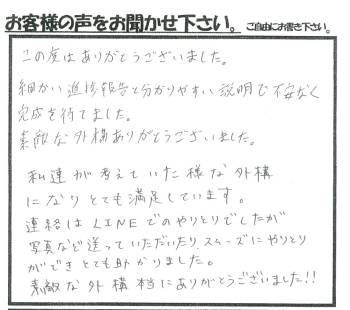 お客様の声をお聞かせ下さい。ご自由にお書き下さい。
この度はありがとうございました。
細かい進捗報告と分かりやすい説明で不安なく
完成を待てました。
素敵な外構ありがとうございました。
私達が考えていた様な外構
になりとても満足しています。
連絡はLINEでのやりとりでしたが
写真など送っていただいたり、スムーズにやりとり
ができとても助かりました。
素敵な外構本当にありがとうございました!!